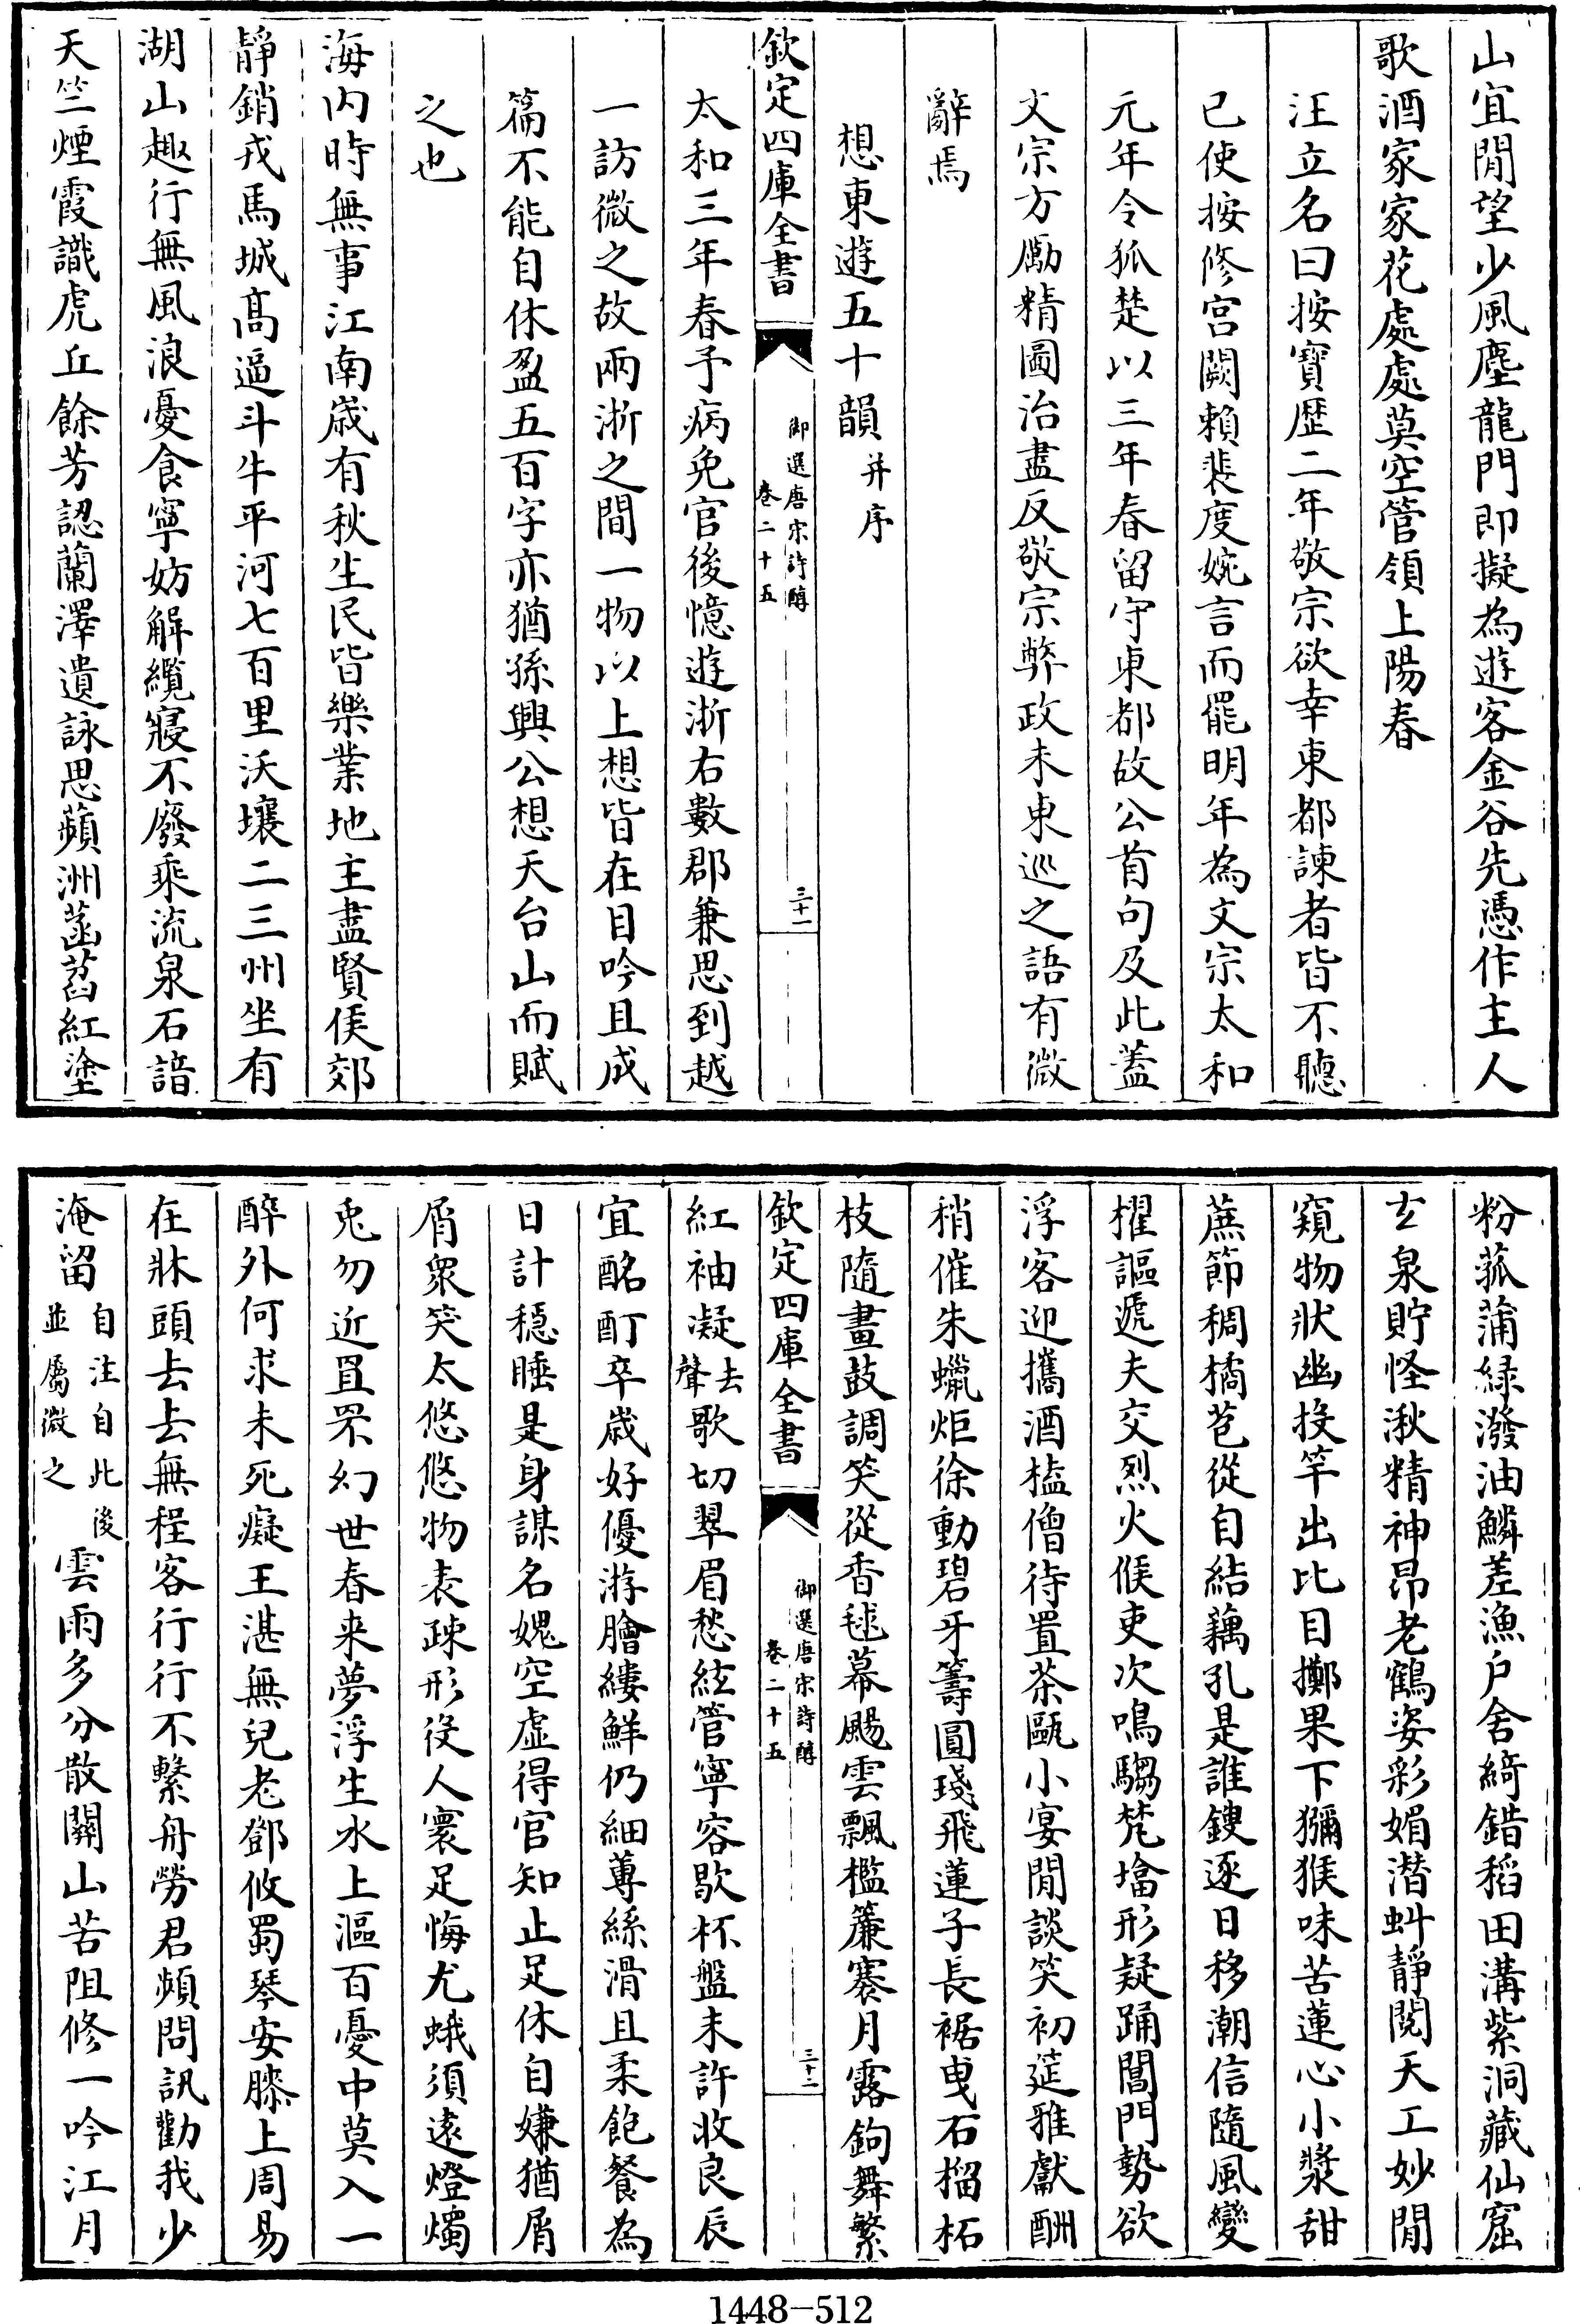 山宜閒望少風塵龍門即擬為遊客金谷先憑作主人
歌酒家家花處處莫空管領上陽春
汪立名曰按寶歴二年敬宗欲幸東都諫者皆不聽
已使按修宫闕賴裴度婉言而罷明年為文宗太和
元年令狐楚以三年春留守東都故公首句及此蓋
文宗方勵精圖治盡反敬宗弊政未東巡之語有微
辭焉
想東遊五十韻并序
欽定四庫全書
御選唐宋詩醇
卷二十五
三十一
太和三年春予病免官後憶遊浙右數郡兼思到越
一訪微之故兩浙之間一物以上想皆在目吟且成
篇不能自休盈五百字亦猶孫興公想天台山而賦
之也
海内時無事江南歳有秋生民皆樂業地主盡賢侯郊
靜銷戎馬城髙逼斗牛平河七百里沃壤二三州坐有
湖山趣行無風浪憂食寧妨解纜寢不廢乘流泉石諳
天竺煙霞識虎丘餘芳認蘭澤遺詠思蘋洲菡萏紅塗
粉菰蒲緑潑油鱗差漁户舍綺錯稻田溝紫洞藏仙窟
玄泉貯怪湫精神昂老鶴姿彩媚潜虯靜閲天工妙閒
窺物狀幽投竿出比目擲果下獼猴味苦蓮心小漿甜
蔗節稠橘苞從自結藕孔是誰鎪逐日移潮信隨風變
櫂謳遞夫交烈火候吏次鳴騶梵塔形疑踊閶門勢欲
浮客迎攜酒榼僧待置茶甌小宴閒談笑初筵雅獻酬
稍催朱蠟炬徐動碧牙籌圓琖飛蓮子長裾曳石榴柘
枝隨畫鼓調笑從香毬幕颺雲飄檻簾褰月露鉤舞繁
欽定四庫全書
御選唐宋詩醇
卷二十五
三十二
紅袖凝去聲歌切翠眉愁絃管寧容歇杯盤未許收良辰
宜酩酊卒歳好優游膾縷鮮仍細蓴絲滑且柔飽餐為
日計穩睡是身謀名媿空虚得官知止足休自嫌猶屑
屑衆笑太悠悠物表疎形役人寰足悔尤蛾須逺燈燭
兎勿近罝罘幻世春来夢浮生水上漚百憂中莫入一
醉外何求未死癡王湛無兒老鄧攸蜀琴安膝上周易
在牀頭去去無程客行行不繫舟勞君頻問訊勸我少
淹留自注自此後並屬微之雲雨多分散關山苦阻修一吟江月
1448-512